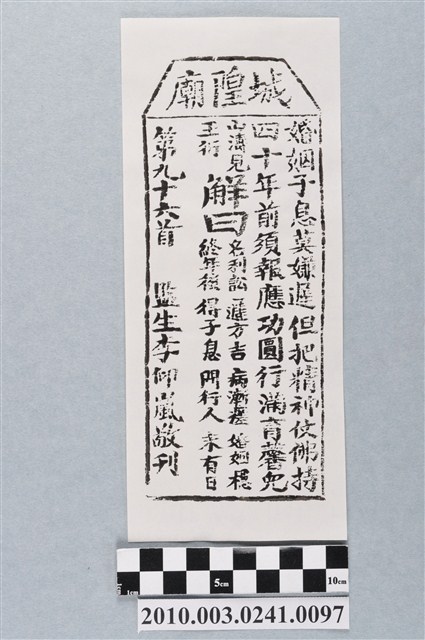 城隍廟
婚姻子息莫嫌遲但把精神仗佛持
四十年前須報應功圓行滿育馨兒
山濤見
王衍
解曰
名利訟 遲方吉 病漸瘥 婚姻穩
終年後 得子息 門行人 未有日
第九十六首 監生李仰嵐敬刊
1cm 5cm 10cm
2010.003.0241.0097